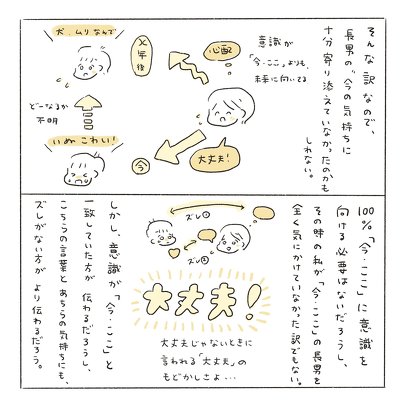 そんな訳なので、
長男の“今の気持ちに
十分寄り添えていなかったのかも
しれない。
意識が
「今・ここ」よりも
未来に向いてる
心配
大丈夫！
〆年後
今
犬、ムリなんで
どーなるか
不明
いぬ こわい！
100%「今・ここ」に意識を
向ける必要はないだろうし、
その時の私が「今・ここ」の長男を
全く気にかけていなかった訳でもない。
ズレ①
ズレ②
大丈夫！
大丈夫じゃないときに
言われる「大丈夫」の
もどかしさよ…
しかし、意識が「今・ここ」と
一致していた方が 伝わるだろうし、
こちらの言葉とあちらの気持ちにも、
ズレがない方が より伝わるだろう。